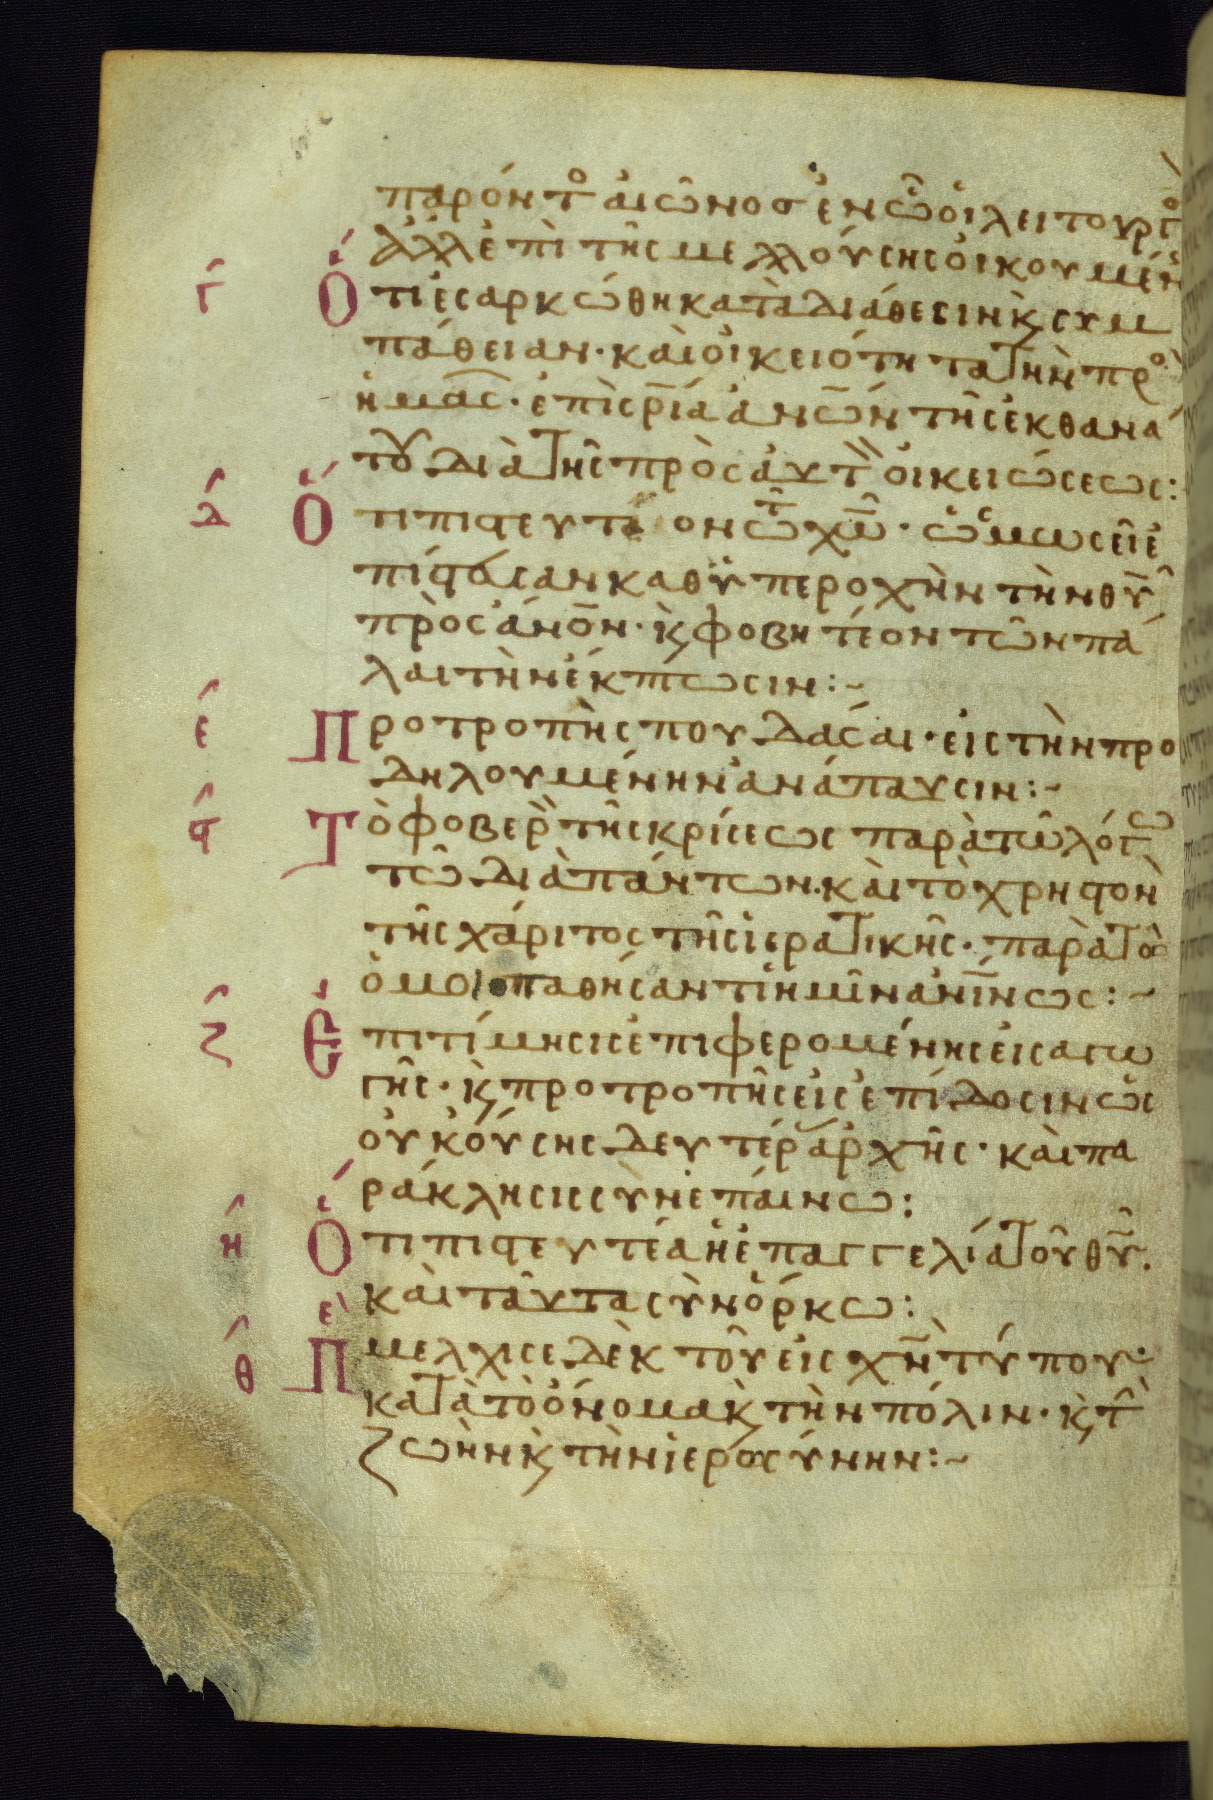 παρόντ° αἰῶνοσ ἐν ᾧ οἱ λειτουργ°
ἀλλ ἐπὶ τῆς μελλούσης οἰκουμέν
γ Ὅτι ἐσαρκώθη κατὰ διάθεσιν κ̀ συμ
πάθειαν· καὶ οἰκειότητα τὴν πρ°
ἡμᾶς· ἐπὶ σρ̅ίᾳ ἀνω̅ν τῆς ἐκ θανά
του διὰ τῆς πρὸς αὐτ οἰκειώσεως:
δ Ὅτι πιστευτέον τῶ χω̅· ὡς μωσεῖ ἐ
πίστευσαν καθ ὑπεροχὴν τὴν θυ̅
πρὸς ἄνο̅ν· κ̀ φοβητέον τῶν πά
λαι τὴν ἔκπτωσιν:~
ε Προτροπὴ σπουδάσαι· εἰς τὴν προ
δηλουμένην ἀνάπαυσιν:~
ϛ Τὸ φοβερ τῆς κρίσεως παρὰ τῶ λόγω
τῶ διὰ πάντων. καὶ τὸ χρηστὸν
τῆς χάριτος τῆς ἱερατικῆς· παρὰ τοῦ
ὁμοιοπαθήσαντι ἡμῖν ἀνι̅νως:~
ζ Ἐπιτίμησις ἐπιφερομένης εἰσαγω
γῆς· κ̀ προτροπῆς εἰς ἐπίδοσιν ὡς
οὐκ οὔσης δευτέρας ἀρχῆς· καὶ πα
ράκλησις σὺν ἐπαίνω:
η Ὅτι πιστευτέα ἡ ἐπαγγελία τοῦ θυ̅.
καὶ ταῦτα σὺν ὅρκω:
θ Πε μελχισεδὲκ τοῦ εἰς χν̅ τύπου·
κατὰ τὸ ὄνομα κ̀ τὴν πόλιν· κ̀ τ
ζωὴν κ̀ τὴν ἱερωσύνην:~